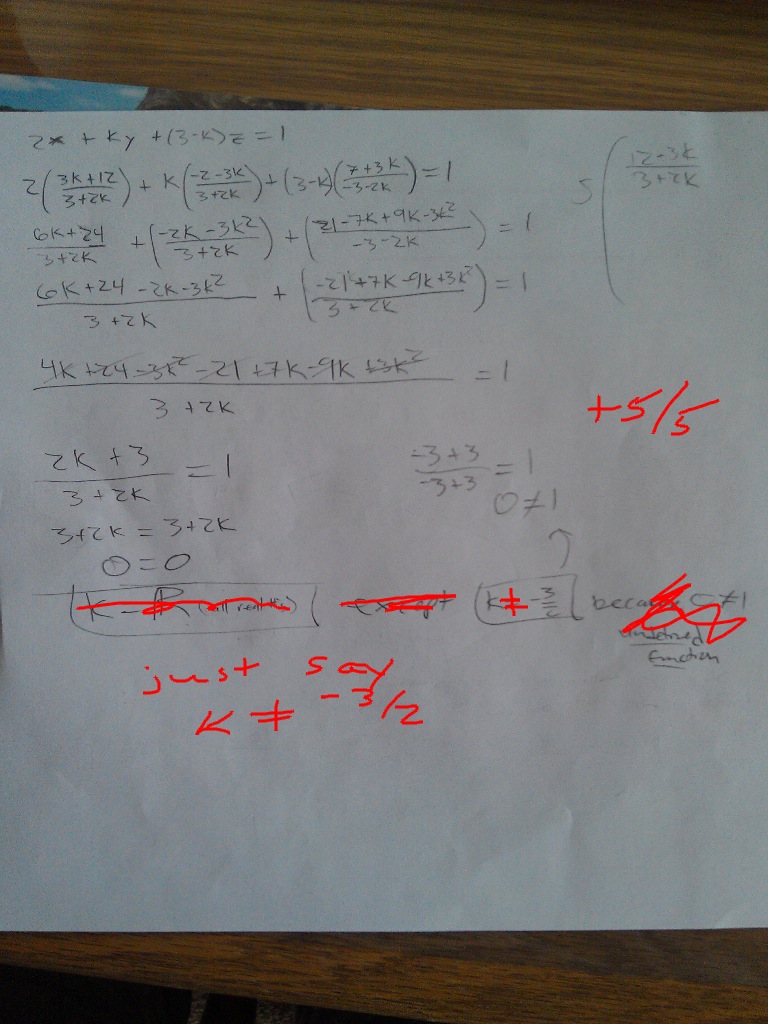 2x + Ky + (3-K)z = 1
2((3K+12)/(3+2K)) + K((-2-3K)/(3+2K)) + (3-K)((7+3K)/(-3-2K)) = 1
(6K+24)/(3+2K) + ((-2K-3K²)/(3+2K)) + ((21-7K+9K-3K²)/(-3-2K)) = 1
(6K+24-2K-3K²)/(3+2K) + ((-21+7K-9K+3K²)/(3+2K)) = 1
(4K+24-3K²-21+7K-9K+3K²)/(3+2K) = 1
(2K+3)/(3+2K) = 1
3+2K = 3+2K
0=0
5( (12-3K)/(3+2K)
+5/5
(-3+3)/(-3+3) = 1
0≠1
K = ℝ (all real #s) except K ≠ -3/2 because 0≠1
undefined
function
just say
K ≠ -3/2